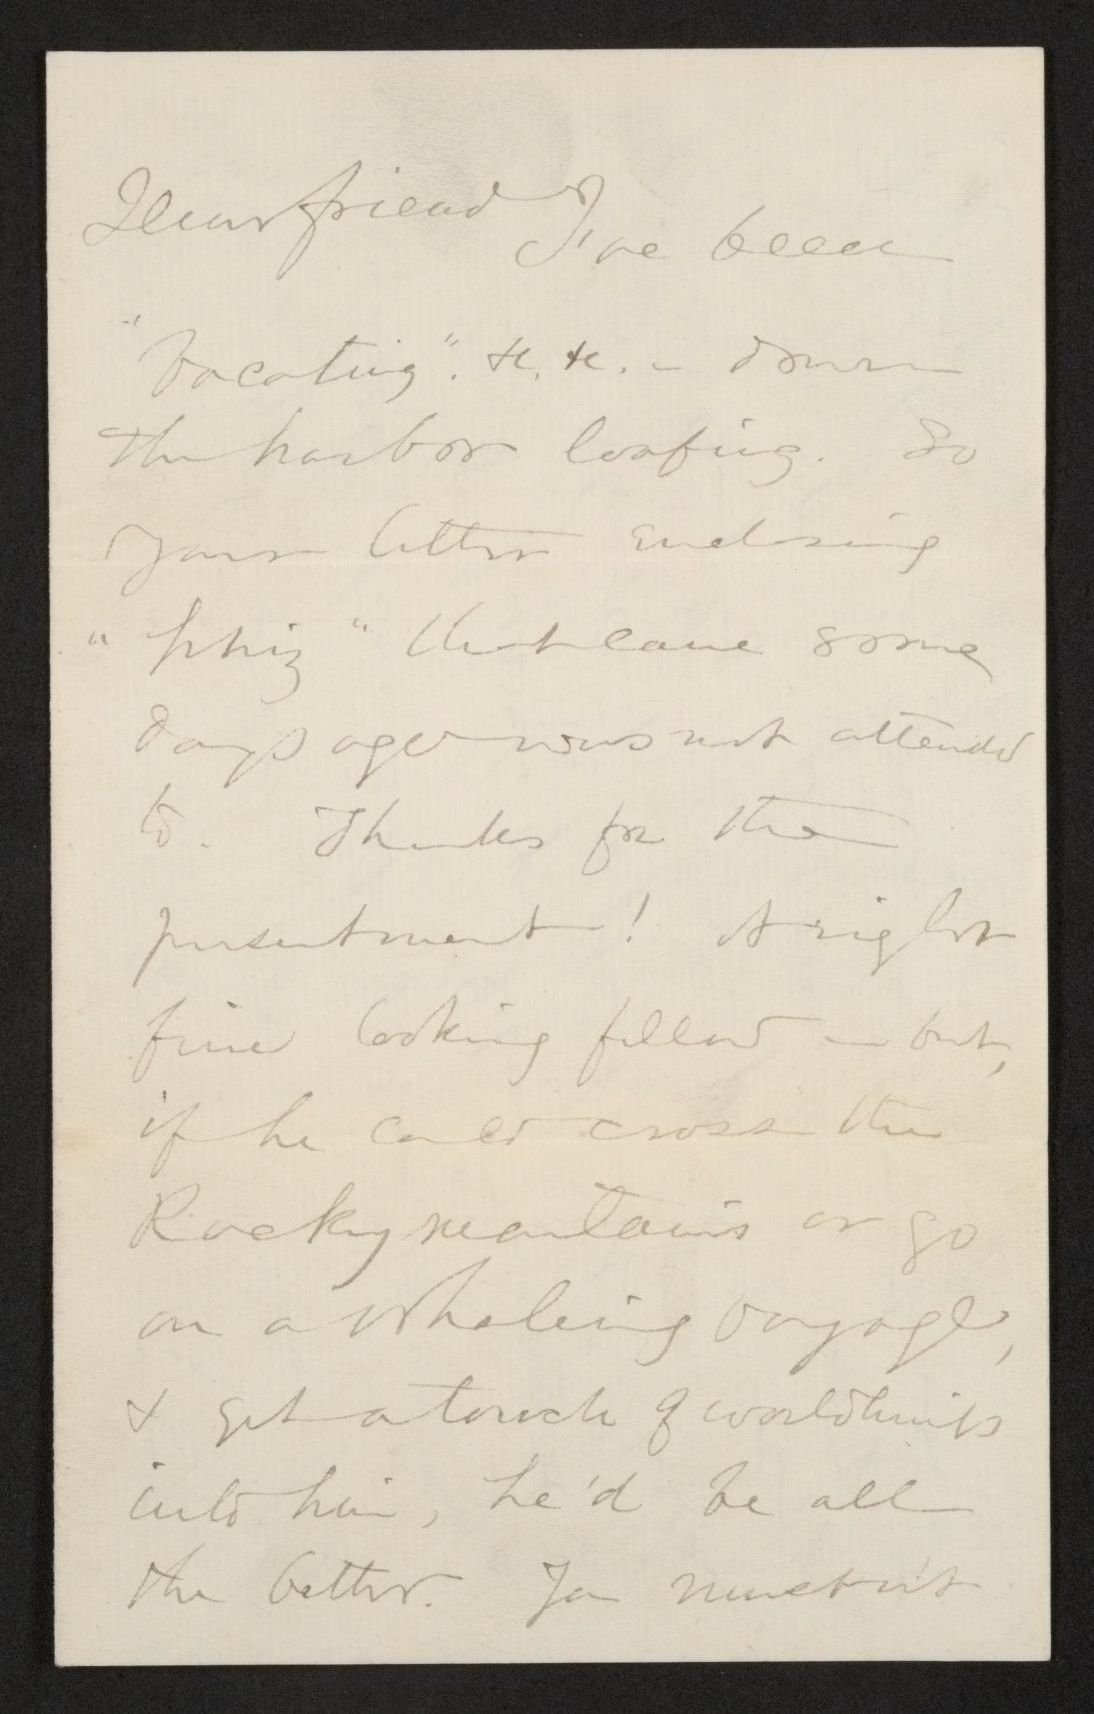 Dear friend I've been
"Vacating". &c. &c. – down
the harbor loafing. So
your letter enclosing
"phiz" that came some
days ago was not attended
to. Thanks for the
presentment! A right
fine looking fellow – but,
if he could cross the
Rocky mountains or go
on a whaleing voyage,
& get a touch of
into him, he'd be all
the better. You mustn't